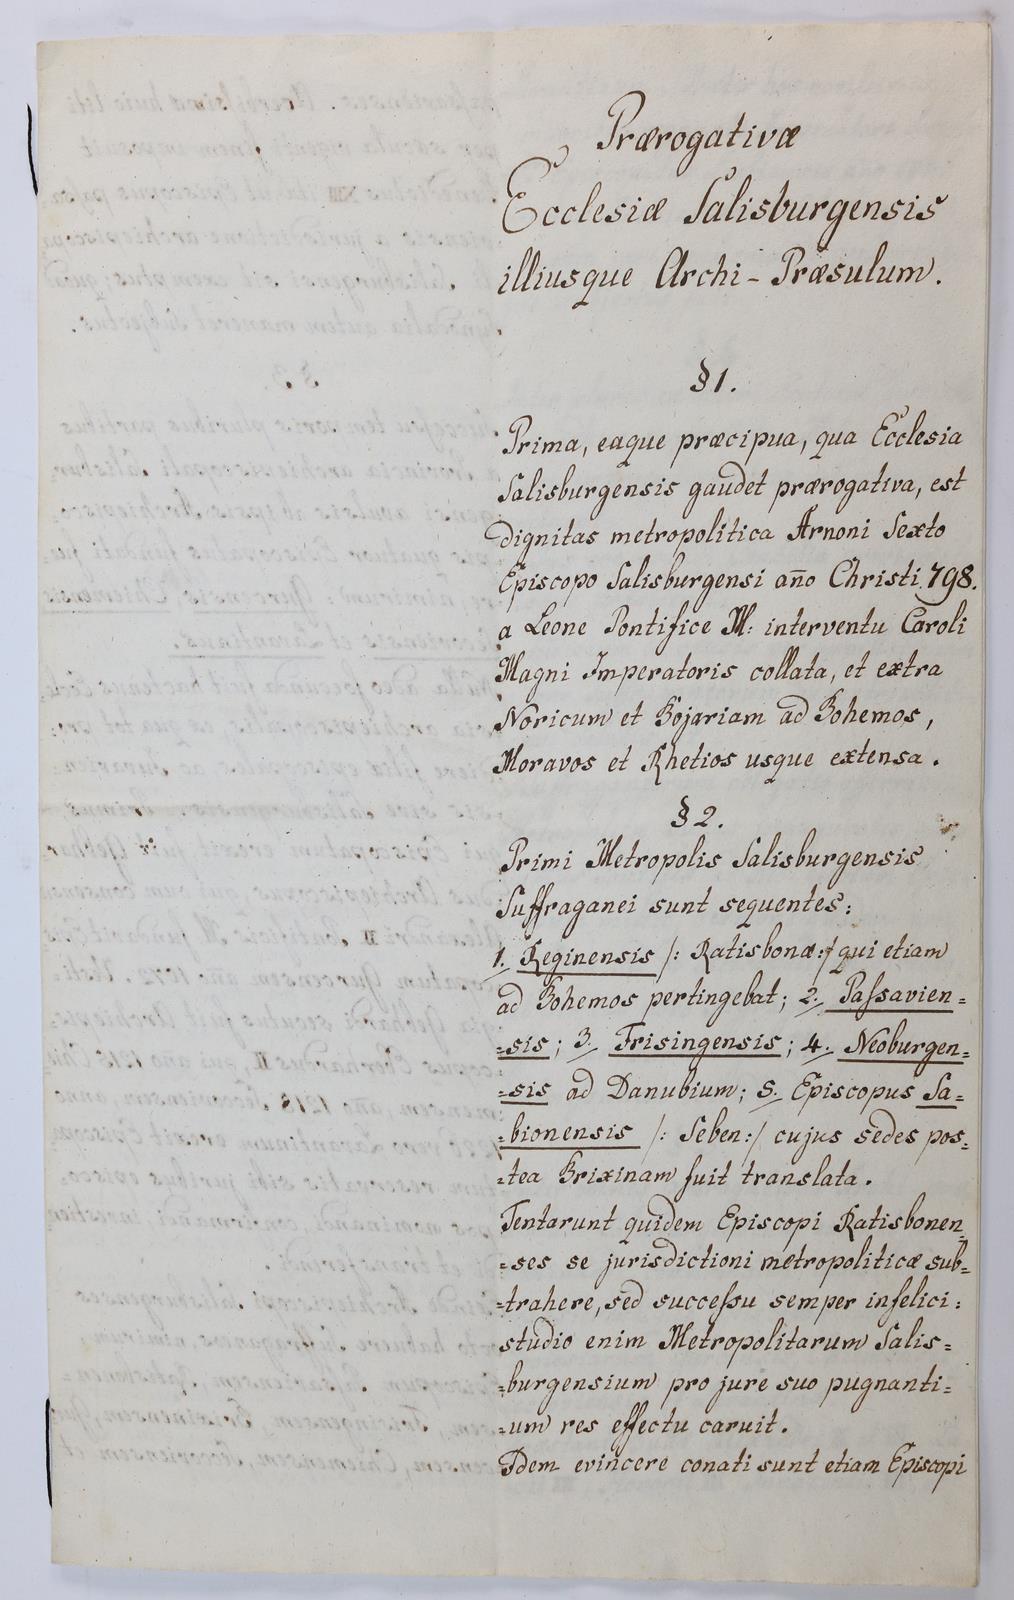 Prærogativæ
Ecclesiæ Salisburgensis
illiusque Archi-Præsulum.
§ 1.
Prima, eaque præcipua, qua Ecclesia
Salisburgensis gaudet prærogativa, est
dignitas metropolitica Arnoni Sexto
Episcopo Salisburgensi año Christi 798.
a Leone Pontifice M: interventu Caroli
Magni Imperatoris collata, et extra
Noricum et Bojariam ad Bohemos,
Moravos et Rhetios usque extensa.
§ 2.
Primi Metropolis Salisburgensis
Suffraganei sunt sequentes:
1. Reginensis /: Ratisbonæ:/ qui etiam
ad Bohemos pertingebat; 2. Paſsavien=
=sis; 3. Frisingensis; 4. Neoburgen=
=sis ad Danubium; 5. Episcopus Sa=
=bionensis /: Seben:/ cujus sedes pos=
=tea Brixinam fuit translata.
Tentarunt quidem Episcopi Ratisbonen
=ses se jurisdictioni metropoliticæ sub=
=trahere, sed succeſsu semper infelici:
studio enim Metropolitarum Salis=
=burgensium pro jure suo pugnanti=
=um res effectu caruit.
Idem evincere conati sunt etiam Episcopi